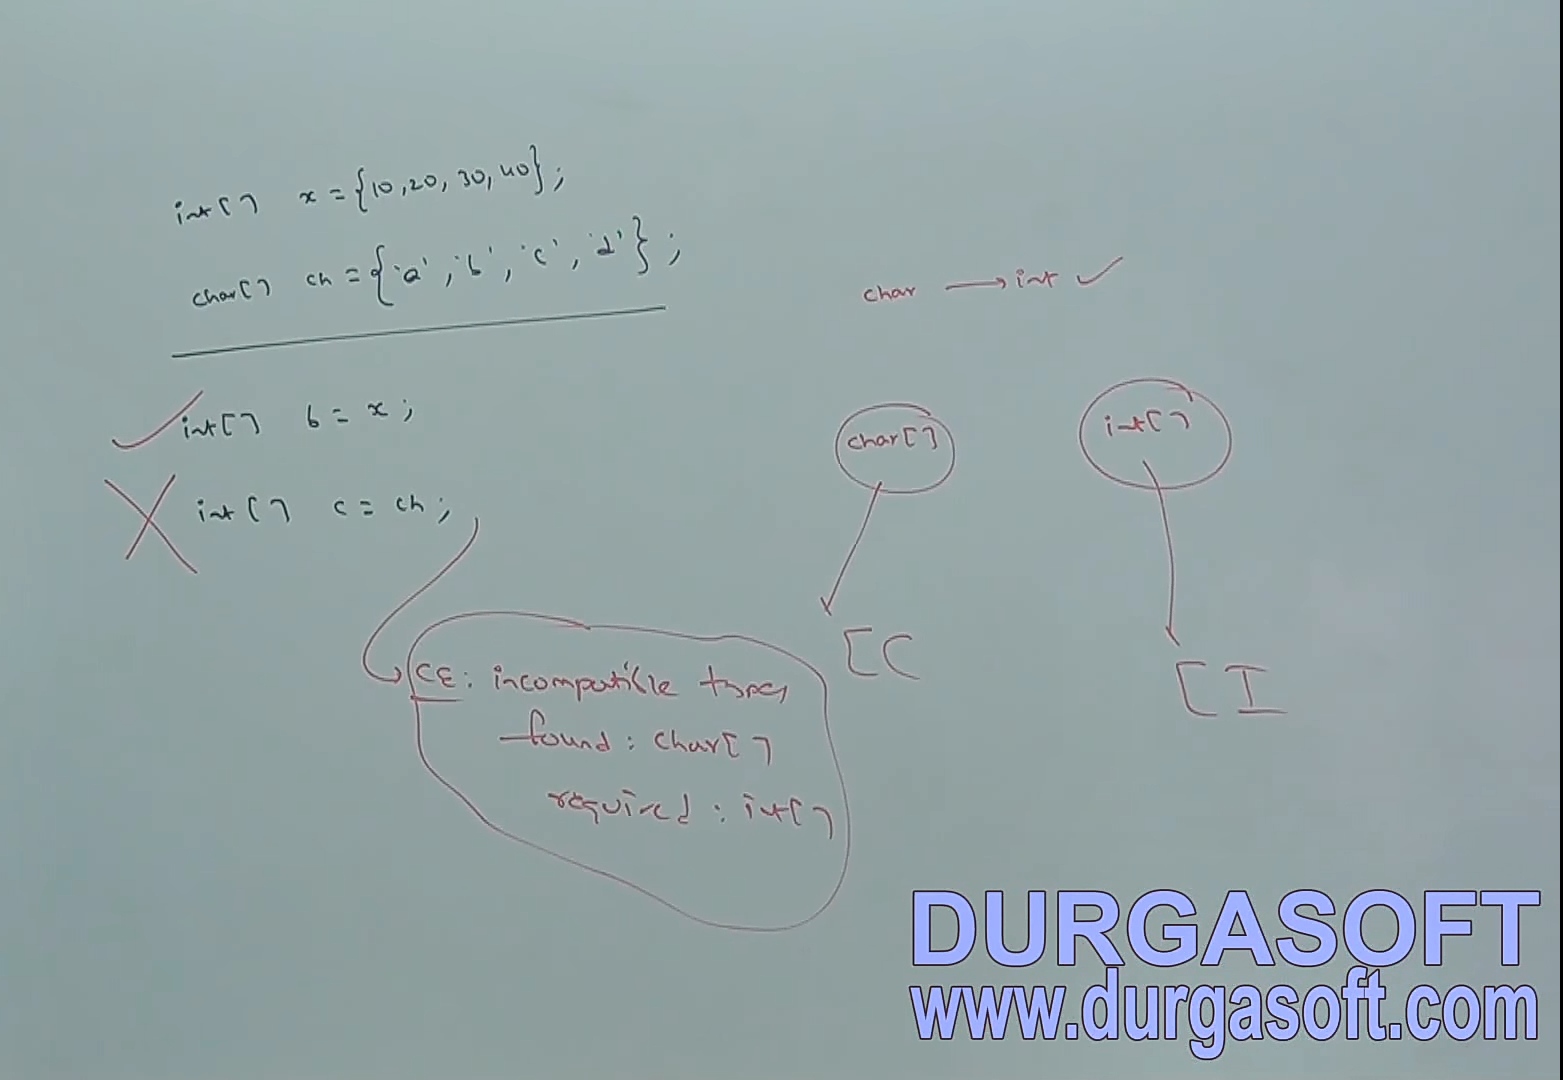 int[] x = {10,20,30,40};
char[] ch = {'a','b','c','d'};
int[] b = x;
int[] c = ch;
CE: incompatible types
found: char[]
required: int[]
char → int ✓
char[]
int[]
[C
[I
DURGASOFT
www.durgasoft.com